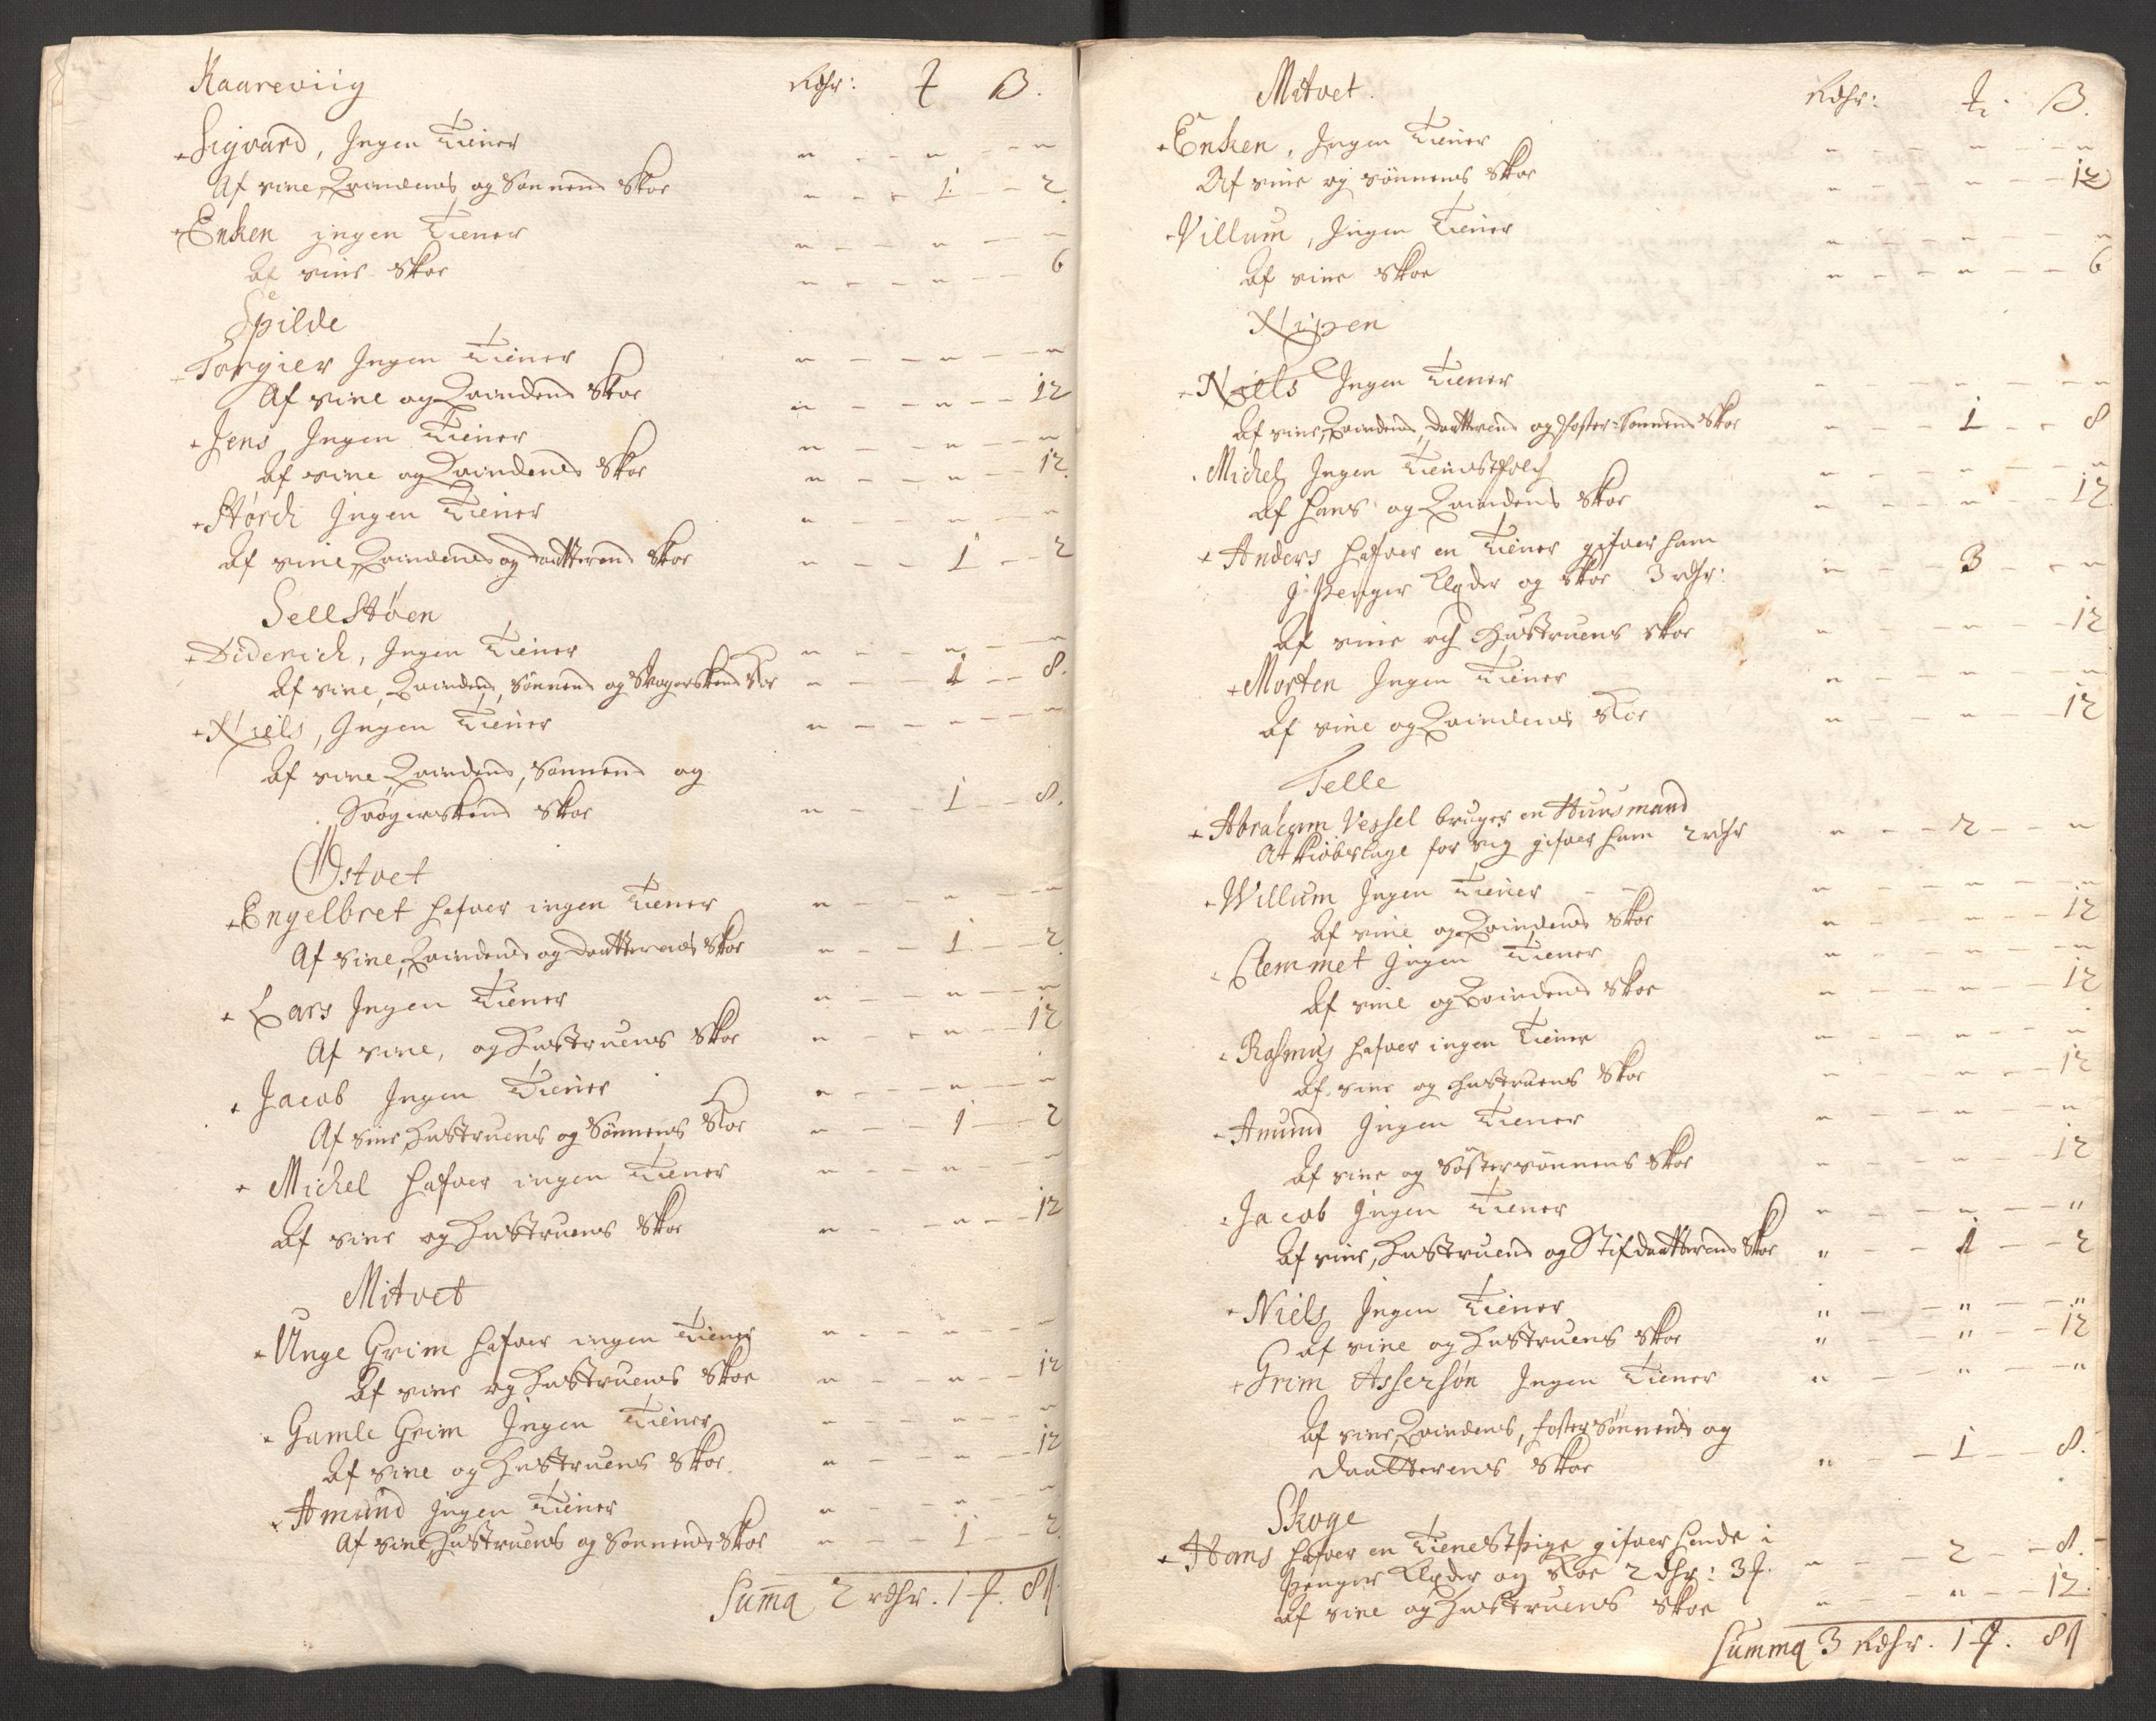 Kaareviig Rdhr: ƚ ß.
+Sigvard, Ingen Tiener " - - " - - "
Af sine, Qvindens og Sønnens Skoe " - - 1 - - 2.
+Enken ingen Tiener " - - " - - "
Af sine Skoe " - - " - - 6
Spilde
+Torgier Ingen Tiener " - - " - - "
Af sine og Qvindens Skoe " - - " - - 12
+Jens Ingen Tiener " - - " - - "
Af sine og Qvindens Skoe " - - " - - 12.
+Størch Ingen Tiener " - - " - - "
Af sine, Qvindens og daatterens Skoe " - - 1 - 2
Sellstøen
+Diderich, Ingen Tiener " - - " - "
Af sine, Qvindens, Sønnens og Svogerskens Skoe " - - 1 - - 8.
+Niels, Ingen Tiener " - - " - - "
Af sine, Qvindens, Sønnens og
Svogerskens Skoe " - - 1 - - 8.
Østvet
+Engelbret hafver ingen Tiener " - - " - - "
Af sine, Qvindens og daatterens Skoe " - - 1 - - 2
+Lars Ingen Tiener " - - " - - "
Af sine, og Hustruens Skoe " - - " - - 12
+Jacob Ingen Tiener " - - " - - "
Af sine Hustruens og Sønnens Skoe " - - 1 - - 2
+Michel hafver ingen Tiener " - - " - - "
Af sine og Hustruens Skoe " - - " - - 12
Mitvet
+Unge Grim hafver ingen Tiener " - - " - - "
Af sine og Hustruens Skoe " - - " - - 12
+Gamle Grim Ingen Tiener " - - " - - "
Af sine og Hustruens Skoe. " - - " - - 12
+Amund Ingen Tiener " - - " - - "
Af sine Hustruens og Sønnens Skoe " - - 1 - - 2.
Summa 2 rdhr. 1 ƚ. 8 ß
Mitvet. Rdhr: ƚ. ß.
+Enken, Ingen Tiener " - - " - - "
Af sine og sønnens Skoe " - - " - - 12
+Villum, Ingen Tiener " - - " - - "
Af sine Skoe " - - " - - 6
Nipen
+Niels Ingen Tiener " - - " - - "
Af sine, Qvindens, daatterens og foster-Sønnens Skoe " - - 1 - - 8
+Michel Ingen Tienistfolch " - - " - - "
Af hans og Qvindens Skoe " - - " - - 12
+Anders hafver en Tiener gifver ham
J Penger Klæder og Skoe 3 rdhr: " - - 3 - - "
Af sine og Hustruens Skoe " - - " - - 12
+Morten Ingen Tiener " - - " - - "
Af sine og Qvindens Skoe " - - " - - 12
Telle
+Abraham Vessel bruger en Huusmand
At Kiøbslage for sig gifver ham 2 rdhr " - - 2 - - "
+Willum Ingen Tiener - - " - - " - - "
Af sine og Qvindens Skoe " - - " - - 12
+Clemmet Ingen Tiener " - - " - - "
Af sine og Qvindens Skoe " - - " - - 12
+Rasmus hafver ingen Tiener " - - " - - "
Af sine og Hustruens Skoe " - - " - - 12
+Amund Ingen Tiener " - - " - - "
Af sine og Søstersønnens Skoe " - - " - - 12
+Jacob Ingen Tiener " - - " - - "
Af sine, Hustruens og Stifdaatterens Skoe " - - 1 - - 2
+Niels Ingen Tiener " - - " - - "
Af sine og Hustruens Skoe " - - " - - 12
+Grim Assersøn Ingen Tiener " - - " - - "
Af sine, Qvindens, foster Sønnens og
daatterens Skoe " - - 1 - - 8.
Skoge
+Hans hafver en Tienestpige gifver hende i
Penger Klæder og Skoe 2 dhr: 3 ƚ. " - - 2 - - 8.
Af sine og Hustruens Skoe " - - " - - 12.
Summa 3 Rdhr. 1 ƚ. 8 ß